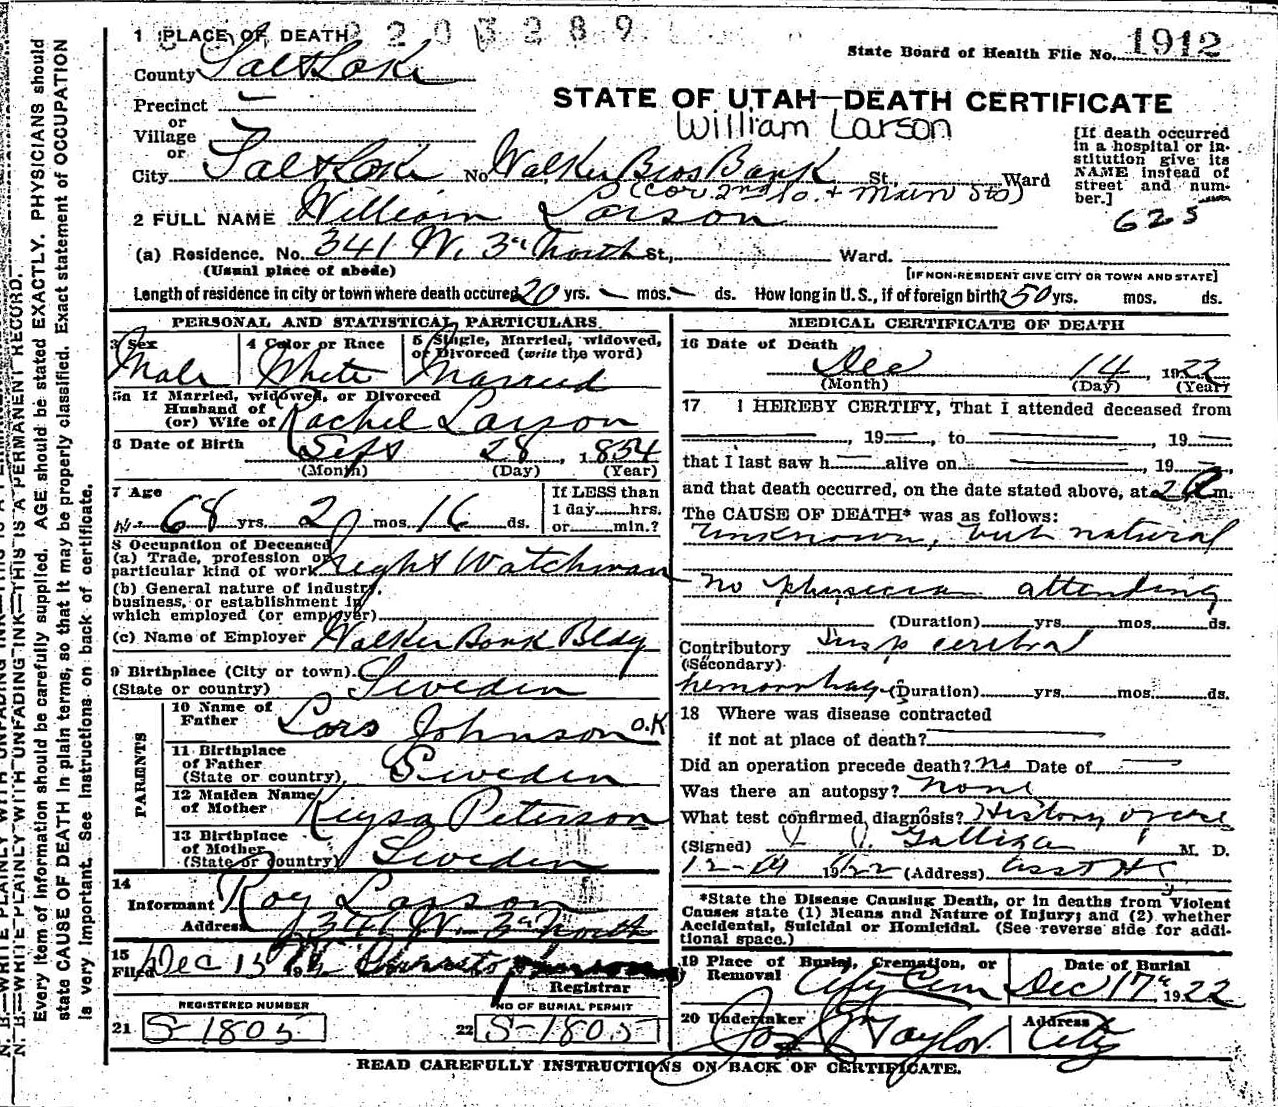 1 PLACE OF DEATH 2203289
State Board of Health File No. 1912
County Salt Lake
STATE OF UTAH—DEATH CERTIFICATE
William Larson
Precinct —
or
Village
or
City Salt Lake No. Walker Bros Bank St. Ward
(cor. 2nd So. + Main Sts)
[If death occurred in a hospital or institution give its NAME instead of street and number.]
625
2 FULL NAME William Larson
(a) Residence. No. 341 W. 3rd North St., Ward.
(Usual place of abode)
[IF NON-RESIDENT GIVE CITY OR TOWN AND STATE]
Length of residence in city or town where death occured 20 yrs. — mos. — ds. How long in U. S., if of foreign birth? 50 yrs. mos. ds.
PERSONAL AND STATISTICAL PARTICULARS
3 Sex Male
4 Color or Race White
5 Single, Married, widowed, or Divorced (write the word) Married
5a If Married, widowed, or Divorced
Husband of
(or) Wife of Rachel Larson
6 Date of Birth Sept 28, 1854
(Month) (Day) (Year)
7 Age 68 yrs. 2 mos. 16 ds.
If LESS than
1 day hrs.
or min.?
8 Occupation of Deceased
(a) Trade, profession or
particular kind of work Night Watchman
(b) General nature of industry,
business, or establishment in
which employed (or employer)
(c) Name of Employer Walker Bank Bldg
9 Birthplace (City or town)
(State or country) Sweden
PARENTS
10 Name of
Father Lars Johnson O.K
11 Birthplace
of Father
(State or country) Sweden
12 Maiden Name
of Mother Keysa Peterson
13 Birthplace
of Mother
(State or country) Sweden
14
Informant Roy Larson
Address 341 W. 3rd North
15
Filed Dec 15 19
Registrar
REGISTERED NUMBER
21 S-1805
NO OF BURIAL PERMIT
22 S-1805
MEDICAL CERTIFICATE OF DEATH
16 Date of Death
Dec 14 1922
(Month) (Day) (Year)
17 I HEREBY CERTIFY, That I attended deceased from
, 19—, to , 19—
that I last saw h— alive on , 19—,
and that death occurred, on the date stated above, at 2 A m.
The CAUSE OF DEATH* was as follows:
Unknown, but natural
no physician attending
(Duration) yrs. mos. ds.
Contributory Susp cerebral
(Secondary)
hemorrhage (Duration) yrs. mos. ds.
18 Where was disease contracted
if not at place of death?
Did an operation precede death? no Date of —
Was there an autopsy? None
What test confirmed diagnosis? History
(Signed) Galligan M. D.
12-14 1922 (Address) asst
*State the Disease Causing Death, or in deaths from Violent
Causes state (1) Means and Nature of Injury; and (2) whether
Accidental, Suicidal or Homicidal. (See reverse side for addi-
tional space.)
19 Place of Burial, Cremation, or
Removal City Cem
Date of Burial
Dec 17th 1922
20 Undertaker Jos Taylor
Address City
READ CAREFULLY INSTRUCTIONS ON BACK OF CERTIFICATE.
N. B.—WRITE PLAINLY WITH UNFADING INK—THIS IS A PERMANENT RECORD.
Every item of information should be carefully supplied. AGE should be stated EXACTLY. PHYSICIANS should
state CAUSE OF DEATH in plain terms, so that it may be properly classified. Exact statement of OCCUPATION
is very important. See instructions on back of certificate.